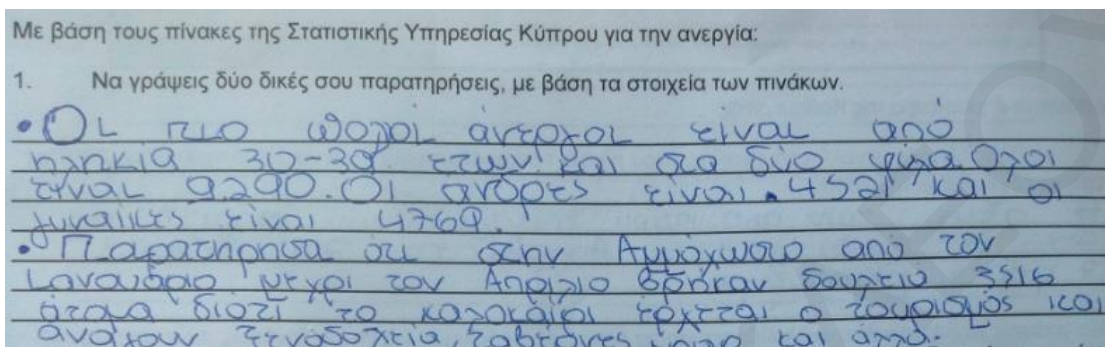 Με βάση τους πίνακες της Στατιστικής Υπηρεσίας Κύπρου για την ανεργία:
1. Να γράψεις δύο δικές σου παρατηρήσεις, με βάση τα στοιχεία των πινάκων.
• Οι πιο πολοι άνεργοι είναι από
ηληκία 30-39 ετων και στα δύο φύλα. Ολοι
είναι 9.290. Οι άνδρες είναι 4521 και οι
γυναίκες είναι 4769.
• Παρατήρησα ότι στην Αμμόχωστο από τον
Ιανουάριο μέχρι τον Απρίλιο βρήκαν δουλειά 3516
άτομα διότι το καλοκαίρι έρχεται ο τουρισμός και
ανοίγουν ξενοδοχεία, ταβέρνες και άλλα.